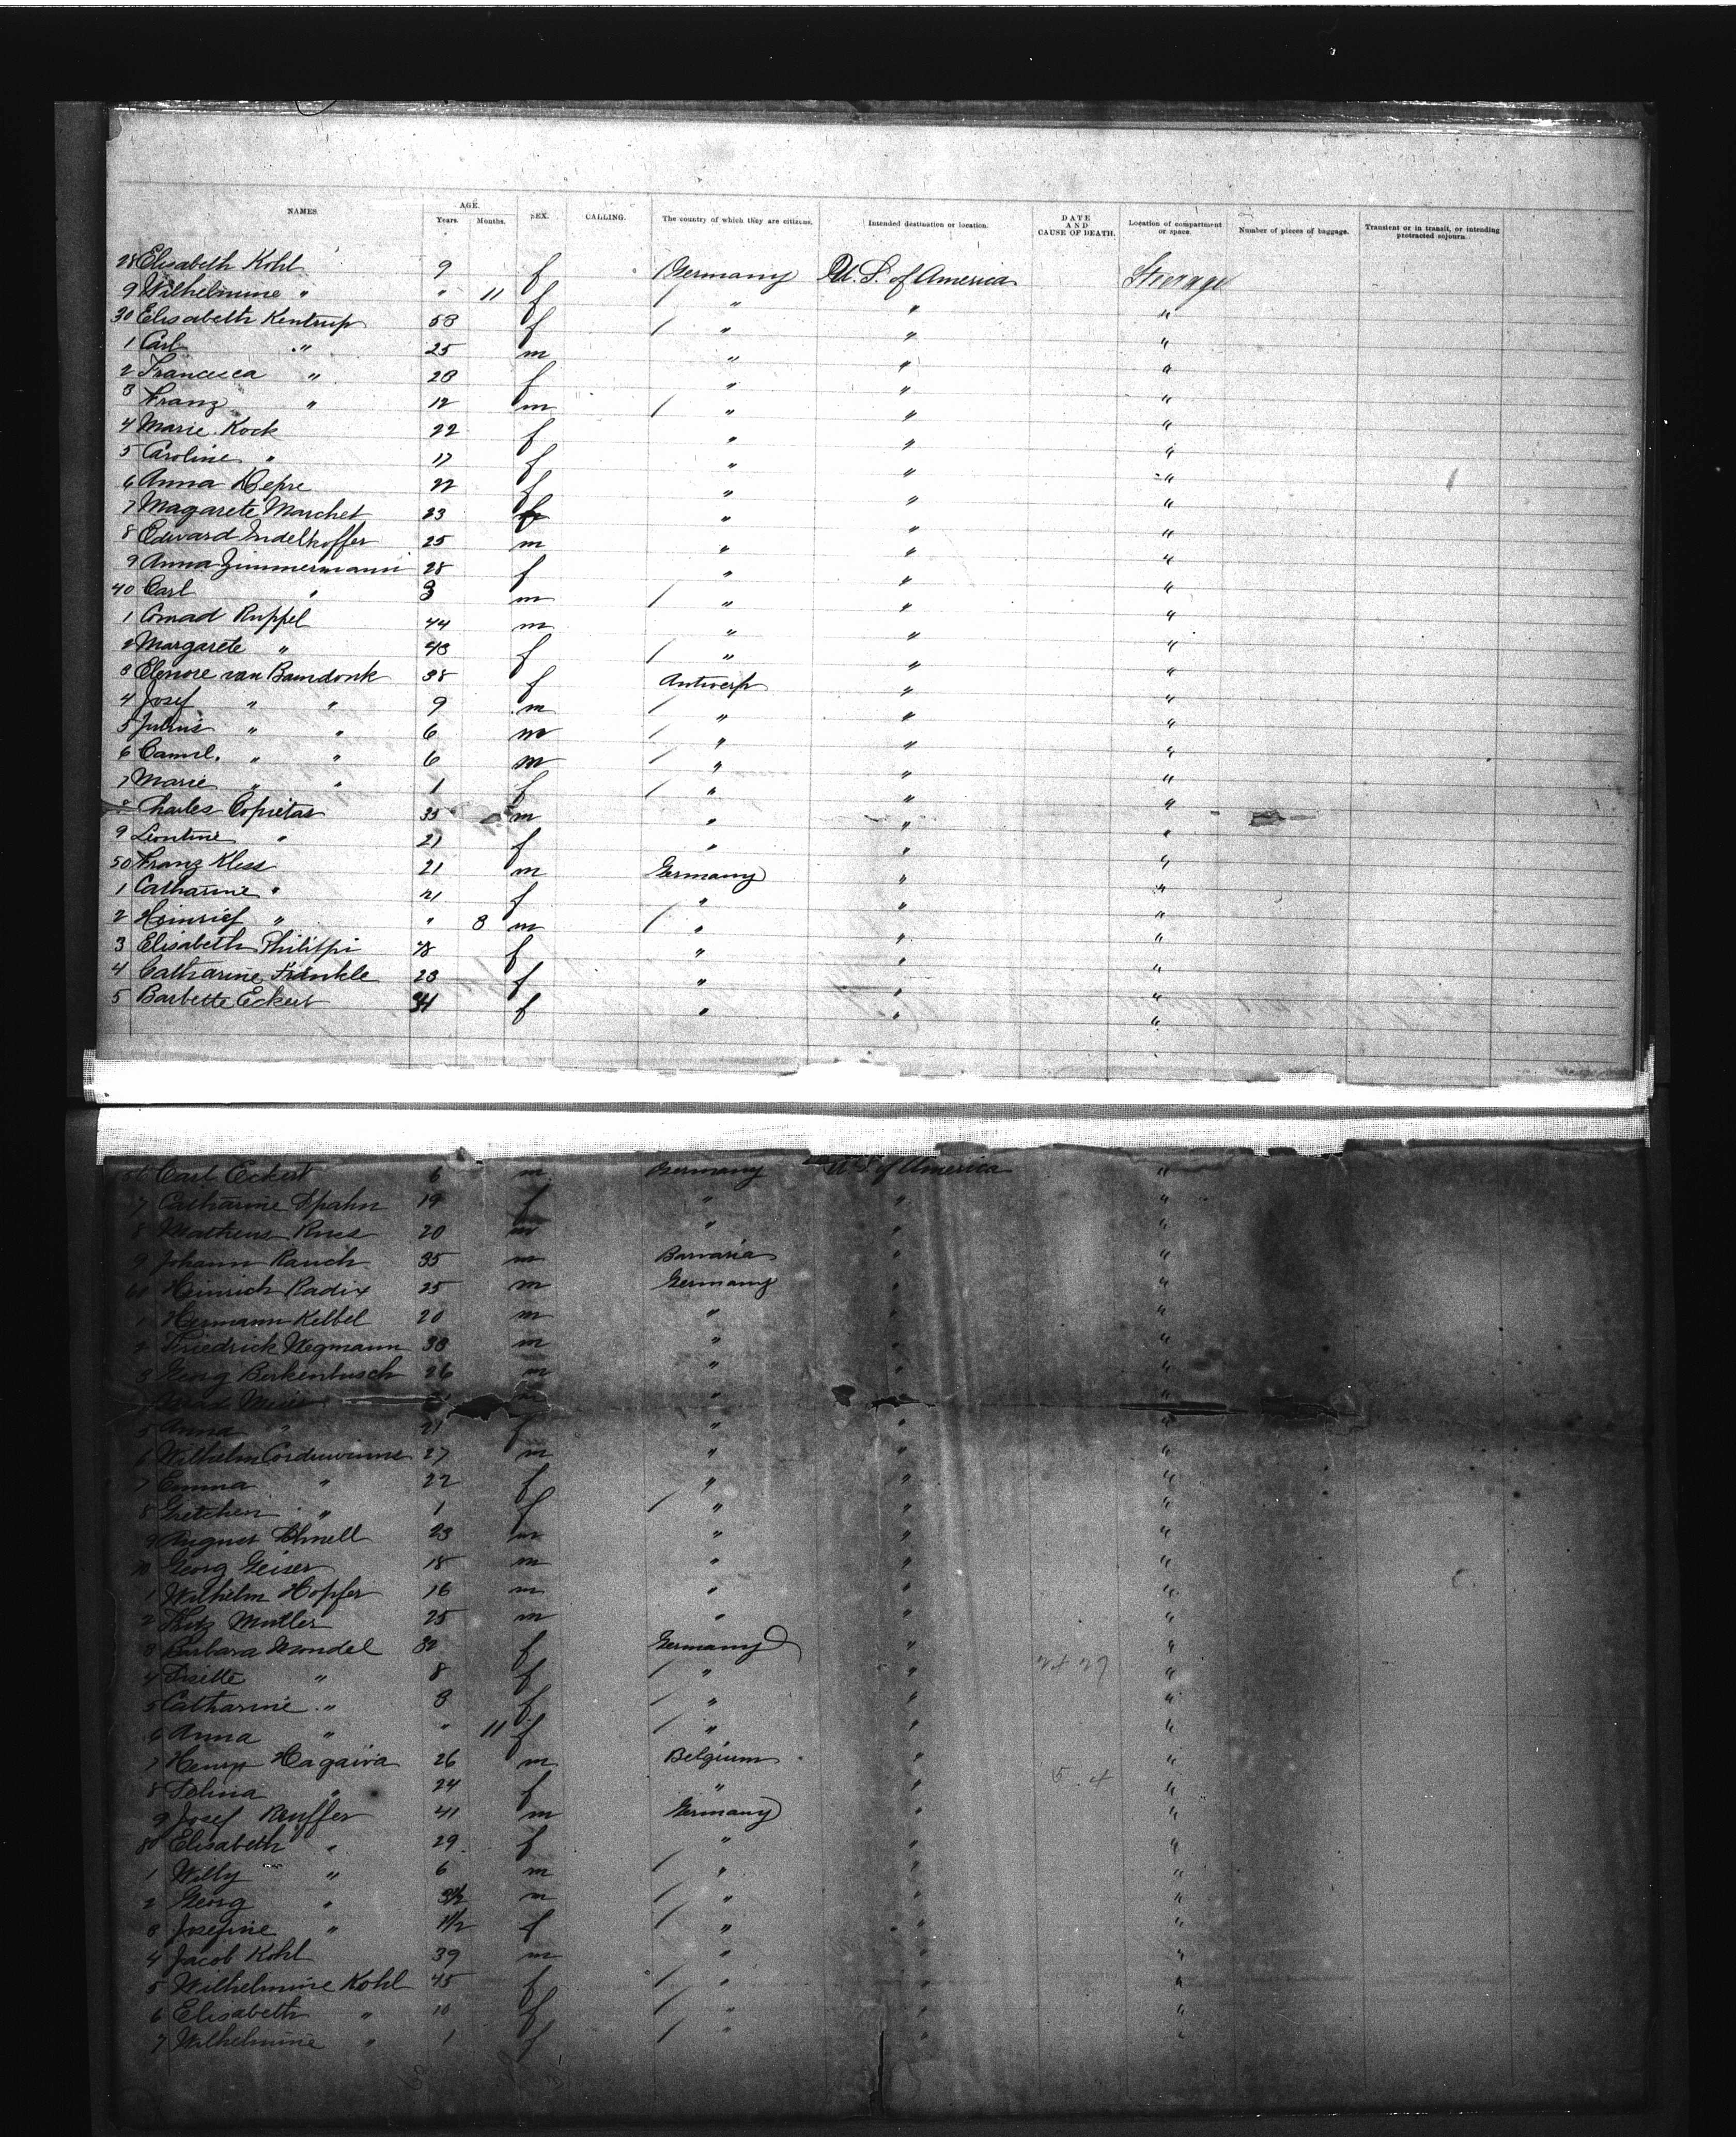 NAMES AGE. Years. Months. SEX. CALLING. The country of which they are citizens. Intended destination or location. DATE AND CAUSE OF DEATH. Location of compartment or space. Number of pieces of baggage. Transient or in transit, or intending protracted sojourn.
28 Elisabeth Kohl 9 f Germany U. S. of America Steerage
9 Wilhelmine " " 11 f " " "
30 Elisabeth Kentrup 58 f " " "
1 Carl " 25 m " " "
2 Francesca " 28 f " " "
3 Franz " 12 m " " "
4 Marie Kock 22 f " " "
5 Caroline " 17 f " " "
6 Anna Depre 22 f " " "
7 Magarete Marchet 23 f " " "
8 Edward Indelhoffer 25 m " " "
9 Anna Zimmermann 28 f " " "
40 Carl " 3 m " " "
1 Conrad Ruppel 44 m " " "
2 Margarete " 43 f " " "
3 Elenore van Bamdonk 38 f Antwerp " "
4 Josef " " 9 m " " "
5 Julius " " 6 m " " "
6 Camil. " " 6 m " " "
7 Marie " " 1 f " " "
8 Charles Copietas 35 m " " "
9 Leontine " 21 f " " "
50 Franz Kless 21 m Germany " "
1 Catharine " 21 f " " "
2 Heinrich " " 8 m " " "
3 Elisabeth Philippi 48 f " " "
4 Catharine Frankle 23 f " " "
5 Barbette Eckert 34 f " " "
56 Carl Eckert 6 m Germany U. S. of America "
7 Catharine Spahn 19 f " " "
8 Matheus Rues 20 m " " "
9 Johann Rauch 35 m Barvaria " "
60 Heinrich Radix 25 m Germany " "
1 Hermann Kelbel 20 m " " "
2 Friedrick Wegmann 38 m " " "
3 Georg Berkenbusch 26 m " " "
Meier m " "
5 Anna " 21 f " " "
6 Wilhelm Corduwinne 27 m " " "
7 Emma " 22 f " " "
8 Gretchen " 1 f " " "
9 August Schnell 23 m " " "
70 Georg Geiser 18 m " " "
1 Wilhelm Hopfer 16 m " " "
2 Fritz Muller 25 m " " "
3 Barbara Mondel 32 f Germany " "
4 Lisette " 8 f " " "
5 Catharine " 3 f " " "
6 Anna " " 11 f " " "
7 Henry Hagaira 26 m Belgium " "
8 Felina " 24 f " " "
9 Josef Reuffer 41 m Germany " "
80 Elisabeth " 29 f " " "
1 Willy " 6 m " " "
2 Georg " 3½ m " " "
3 Josefine " 1½ f " " "
4 Jacob Kohl 39 m " " "
5 Wilhelmine Kohl 45 f " " "
6 Elisabeth " 10 f " " "
7 Wilhelmine " 1 f " " "